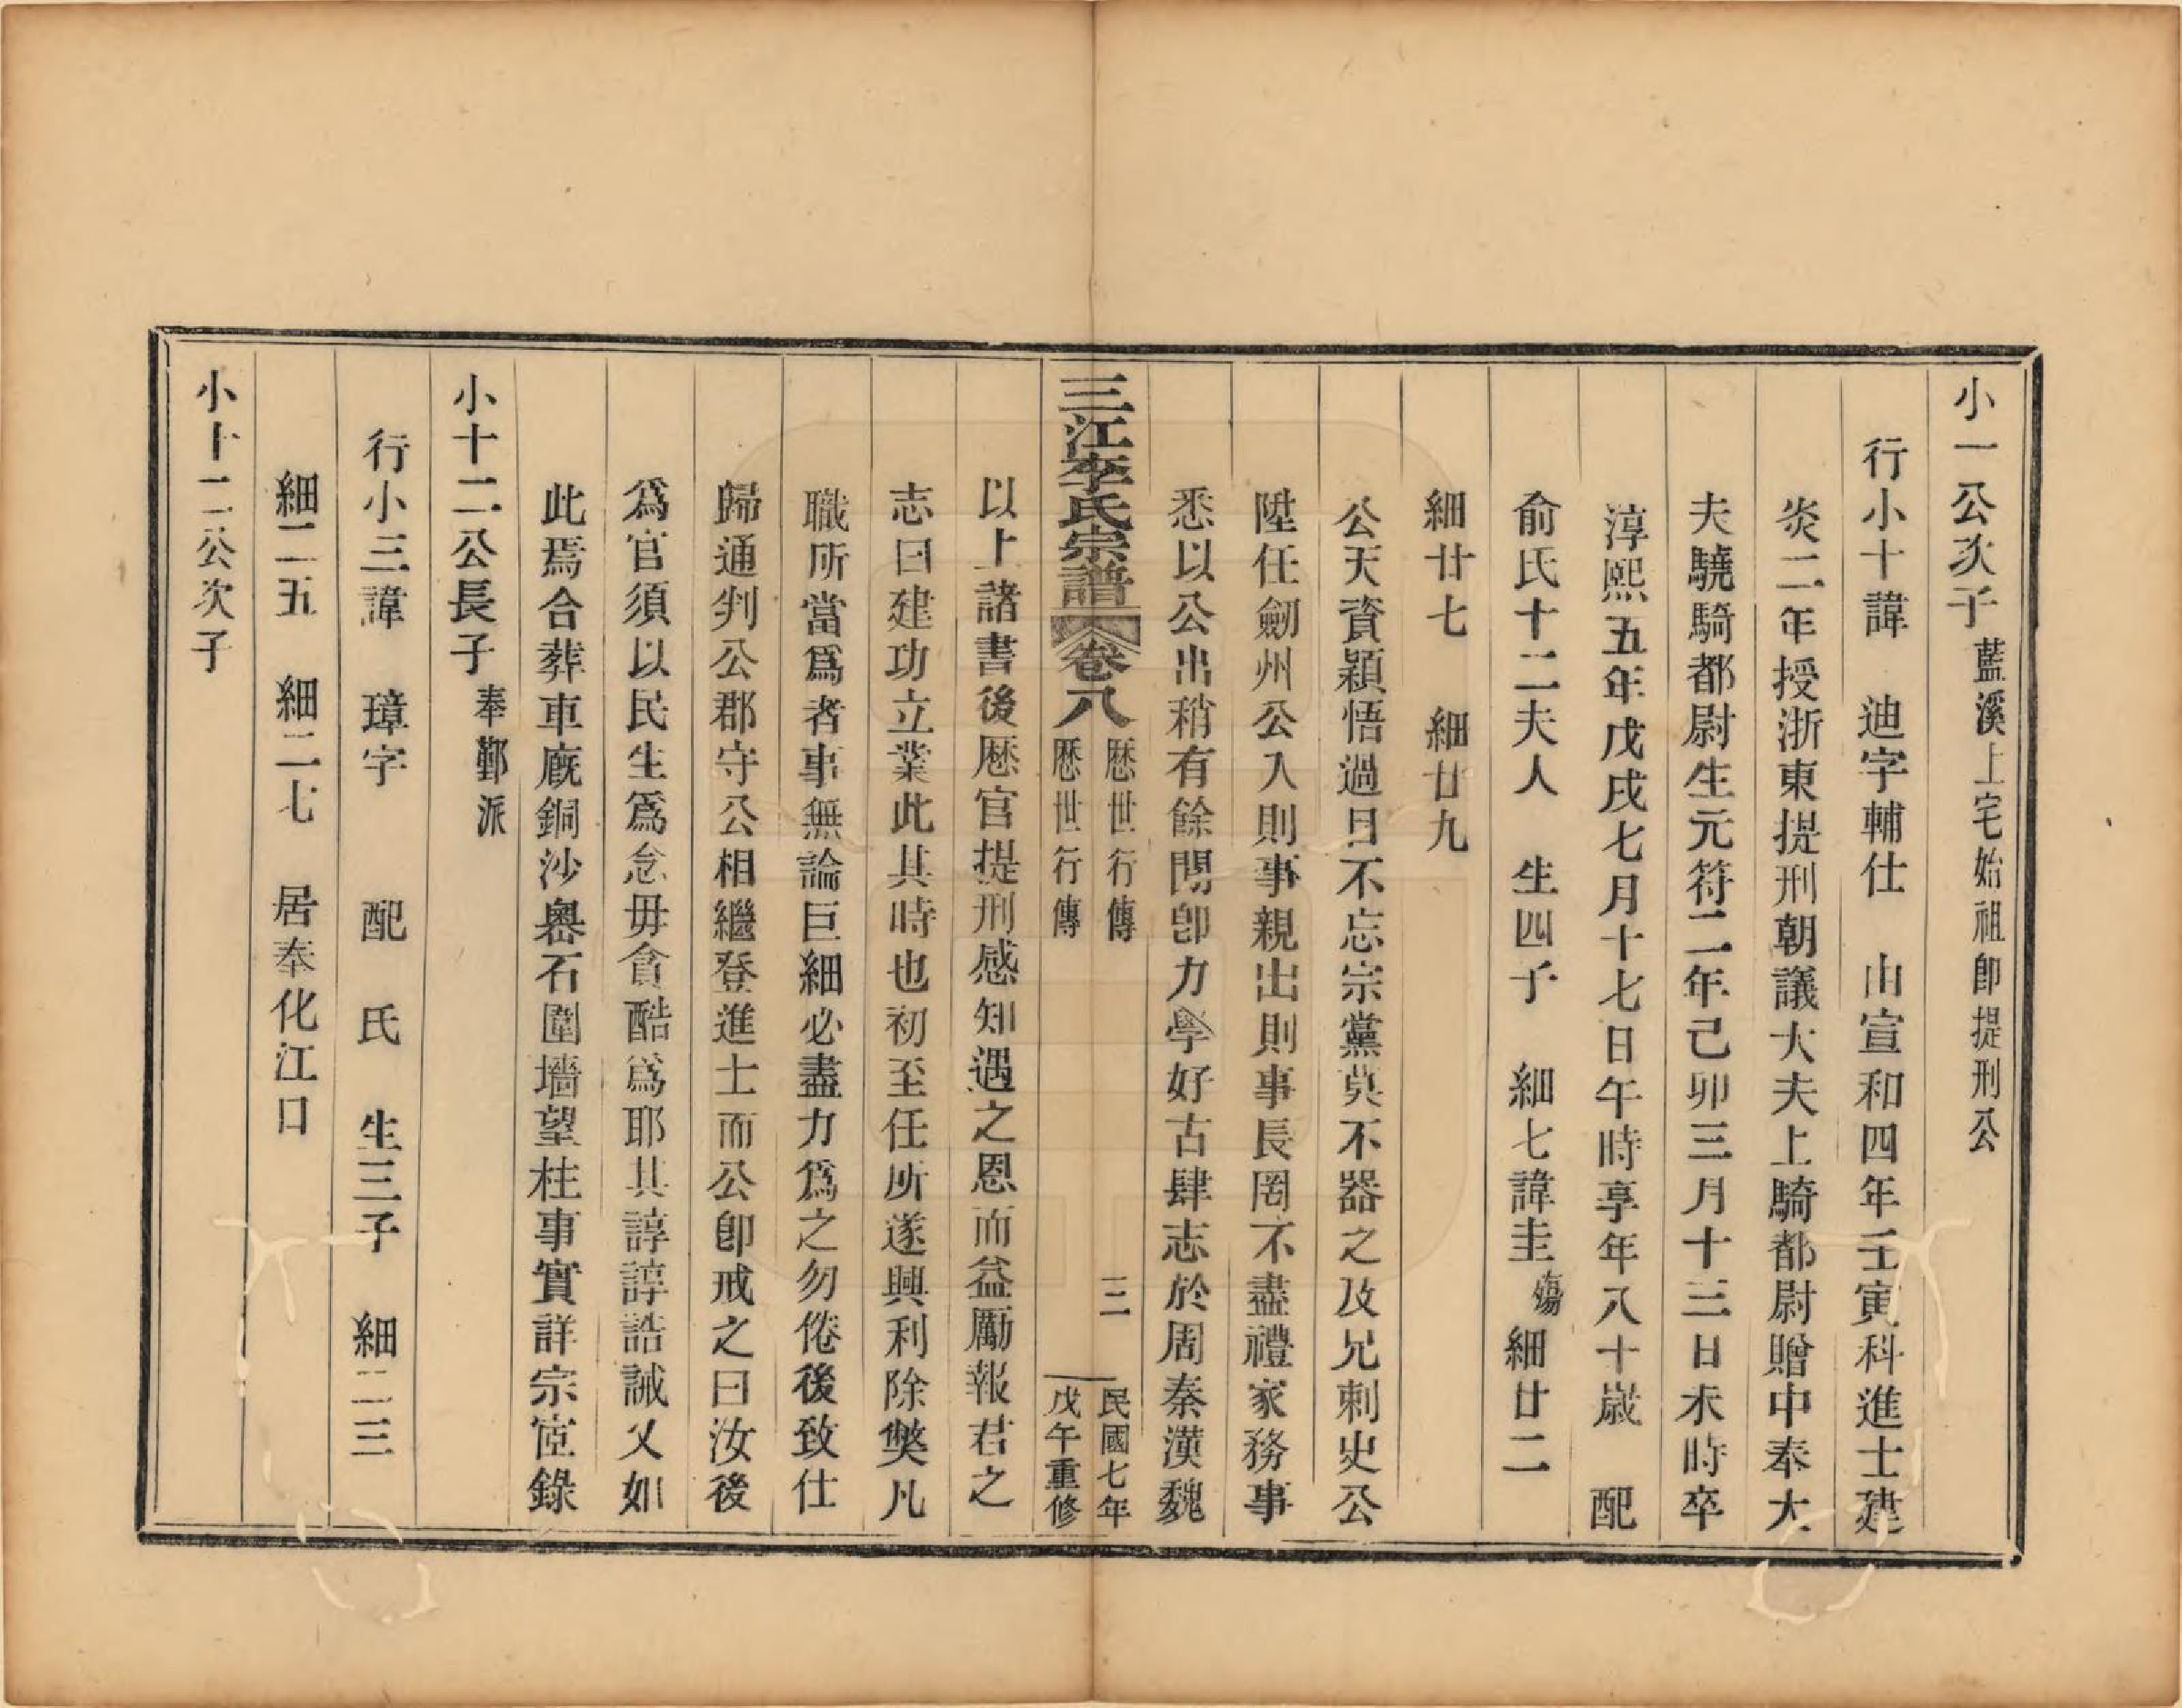 小一公次子 藍溪上宅始祖卽提刑公
行小十諱 迪字輔仕 由宣和四年壬寅科進士建
炎二年授浙東提刑朝議大夫上騎都尉贈中奉大
夫驍騎都尉生元符二年己卯三月十三日未時卒
淳熙五年戊戌七月十七日午時享年八十歲 配
俞氏十二夫人 生四子 細七諱圭殤細廿二
細廿七 細廿九
公天資穎悟過目不忘宗黨莫不器之及兄刺史公
陞任劒州公入則事親出則事長罔不盡禮家務事
悉以公出稍有餘閒卽力學好古肆志於周秦漢魏
三江李氏宗譜 卷八 歷世行傳 歷世行傳 三 民國七年 戊午重修
以上諸書後歷官提刑感知遇之恩而益勵報君之
志曰建功立業此其時也初至任所遂興利除獘凡
職所當爲者事無論巨細必盡力爲之勿倦後致仕
歸通判公郡守公相繼登進士而公卽戒之曰汝後
爲官須以民生爲念毋貪酷爲耶其諄諄誥誡又如
此焉合葬車廐銅沙嶴石圍墻望柱事實詳宗宦錄
小十二公長子 奉鄞派
行小三諱 璋字 配 氏 生三子 細二三
細二五 細二七 居奉化江口
小十二公次子